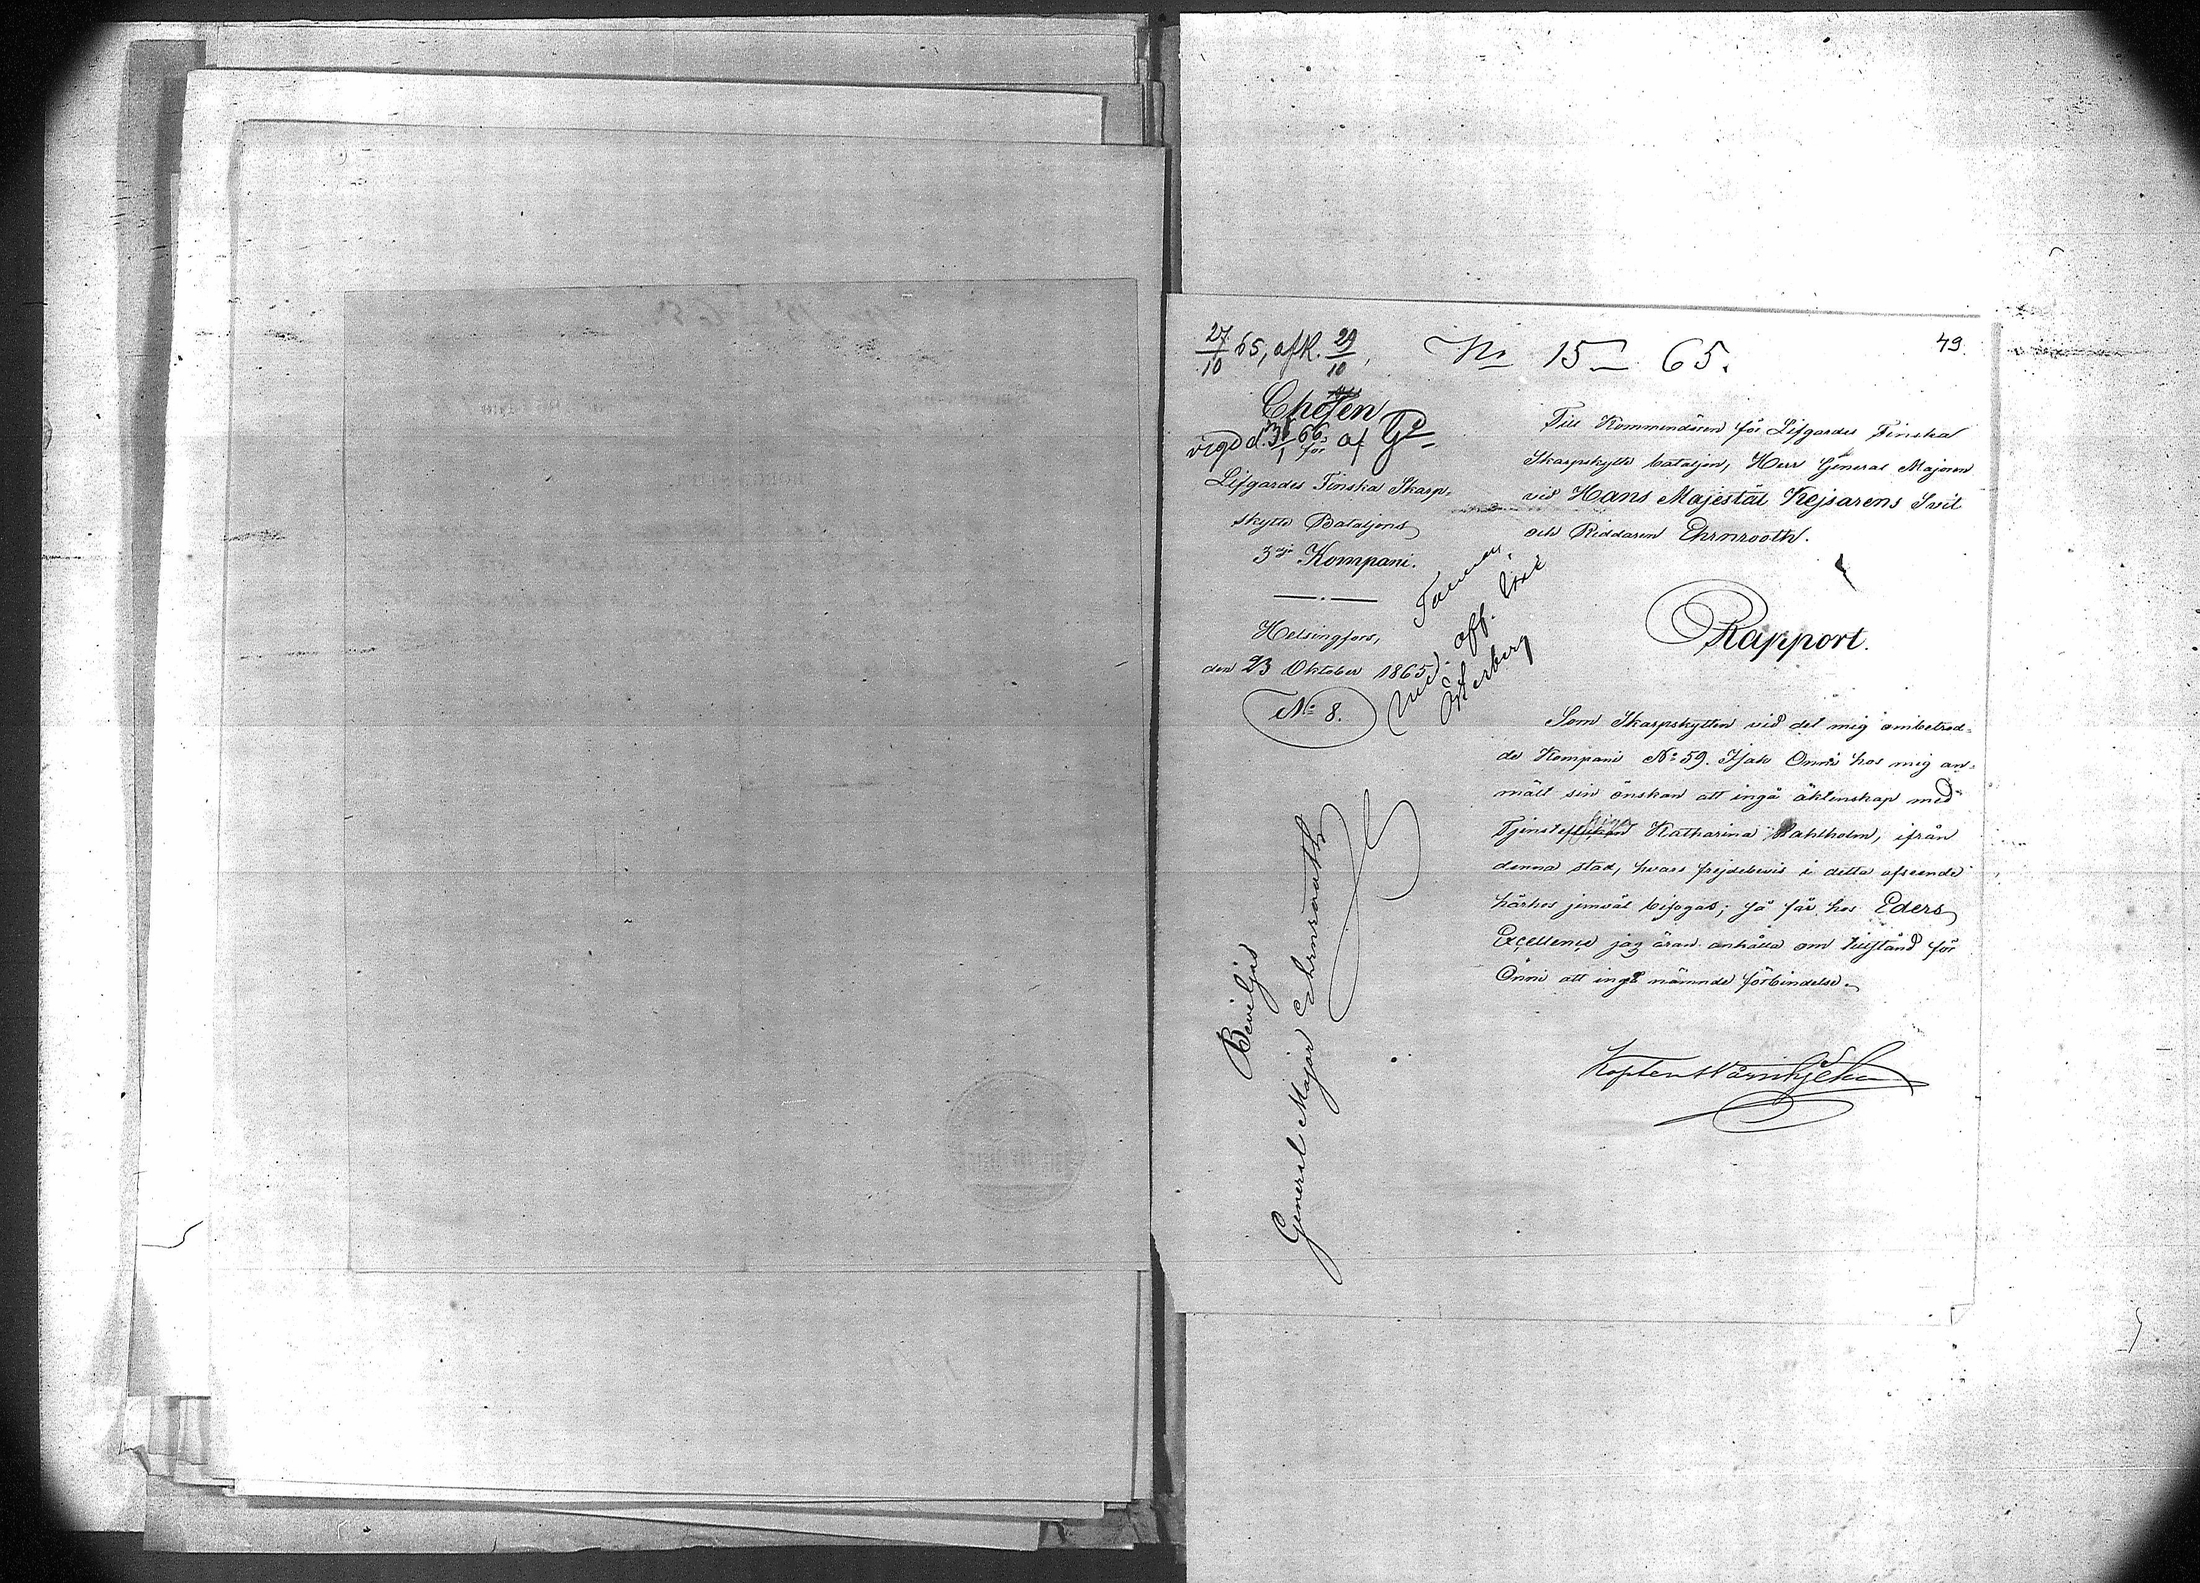 27/10 65, afk. 29/10,
No 15 65.
49.
Chefen
vigd d. 3/1 66 af
för
Lifgardes Finska Skarp-
skytte Bataljons
3dje Kompani.
Helsingfors,
den 23 Oktober 1865
No 8.
vid. off.
Österberg
Till Kommendören för Lifgardes Finska
Skarpskytte bataljon, Herr General Majoren
vid Hans Majestät Kejsarens Svit
och Riddaren Ehrnrooth.
Rapport.
Som Skarpskytten vid det mig anbetrod-
de Kompani No 59. Isak Onni hos mig an-
mält sin önskan att ingå äktenskap med
Tjenste Katharina Dahlholm, ifrån
denna stad, hvars frejdebevis i detta afseende
härhos jemväl bifogas; så får hos Eders
Excellence jag äran anhålla om tillstånd för
Onni att ingå nämnde förbindelse.
Kapten
Beviljas
General Major Ehrnrooth